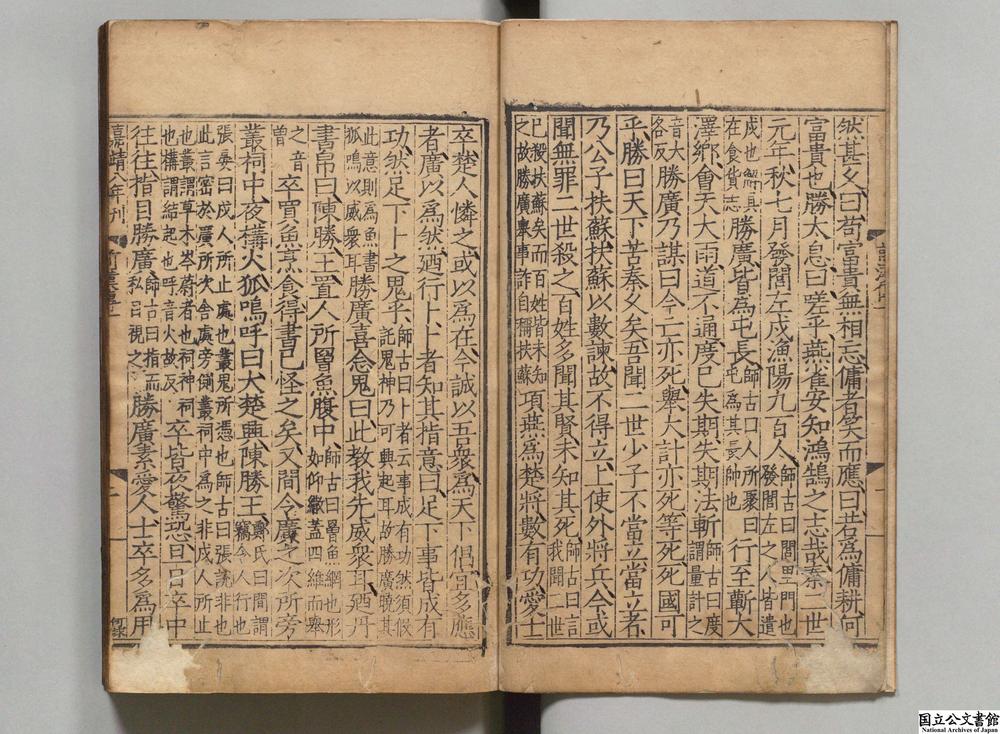 然甚久曰苟富貴無相忘傭者笑而應曰若爲傭耕何
富貴也勝太息曰嗟乎燕雀安知鴻鵠之志哉秦二世
元年秋七月發閭左戍漁陽九百人師古曰閭里門也
發閭左之人皆遣
戍也解具
在食貨志勝廣皆爲屯長師古曰人所聚曰
屯爲其長帥也行至蘄大
澤鄉會天大雨道不通度已失期失期法斬師古曰度
謂量計之
音大
各反勝廣乃謀曰今亡亦死舉大計亦死等死死國可
乎勝曰天下苦秦久矣吾聞二世少子不當立當立者
乃公子扶蘇扶蘇以數諫故不得立上使外將兵今或
聞無罪二世殺之百姓多聞其賢未知其死師古曰言
我聞二世
已殺扶蘇矣而百姓皆未知
之故勝廣舉事詐自稱扶蘇項燕爲楚將數有功愛士
卒楚人憐之或以爲在今誠以吾衆爲天下倡宜多應
者廣以爲然迺行卜卜者知其指意曰足下事皆成有
功然足下卜之鬼乎師古曰卜者云事成有功然須假
託鬼神乃可興起耳故勝廣曉其
此意則爲魚書
狐鳴以威衆耳勝廣喜念鬼曰此教我先威衆耳迺丹
書帛曰陳勝王置人所罾魚腹中師古曰罾魚網也形
如仰繖蓋四維而舉
之音
曾卒買魚烹食得書已怪之矣又間令廣之次所旁
叢祠中夜構火狐鳴呼曰大楚興陳勝王鄭氏曰間謂
竊令人行也
張晏曰戍人所止處也叢鬼所憑也師古曰張說非也
此言密於廣所次舍處旁側叢祠中爲之非戍人所止
也叢謂草木岑蔚者也祠神祠
也構謂結起也呼音火故反卒皆夜驚恐旦日卒中
往往指目勝廣師古曰指而
私目視之勝廣素愛人士卒多爲用
嘉靖八年刊
國立公文書館
National Archives of Japan